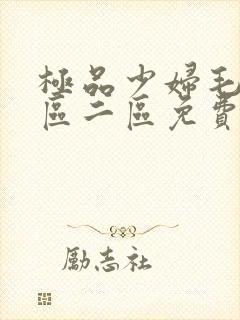 極品少婦毛
區二區免費
勵志社